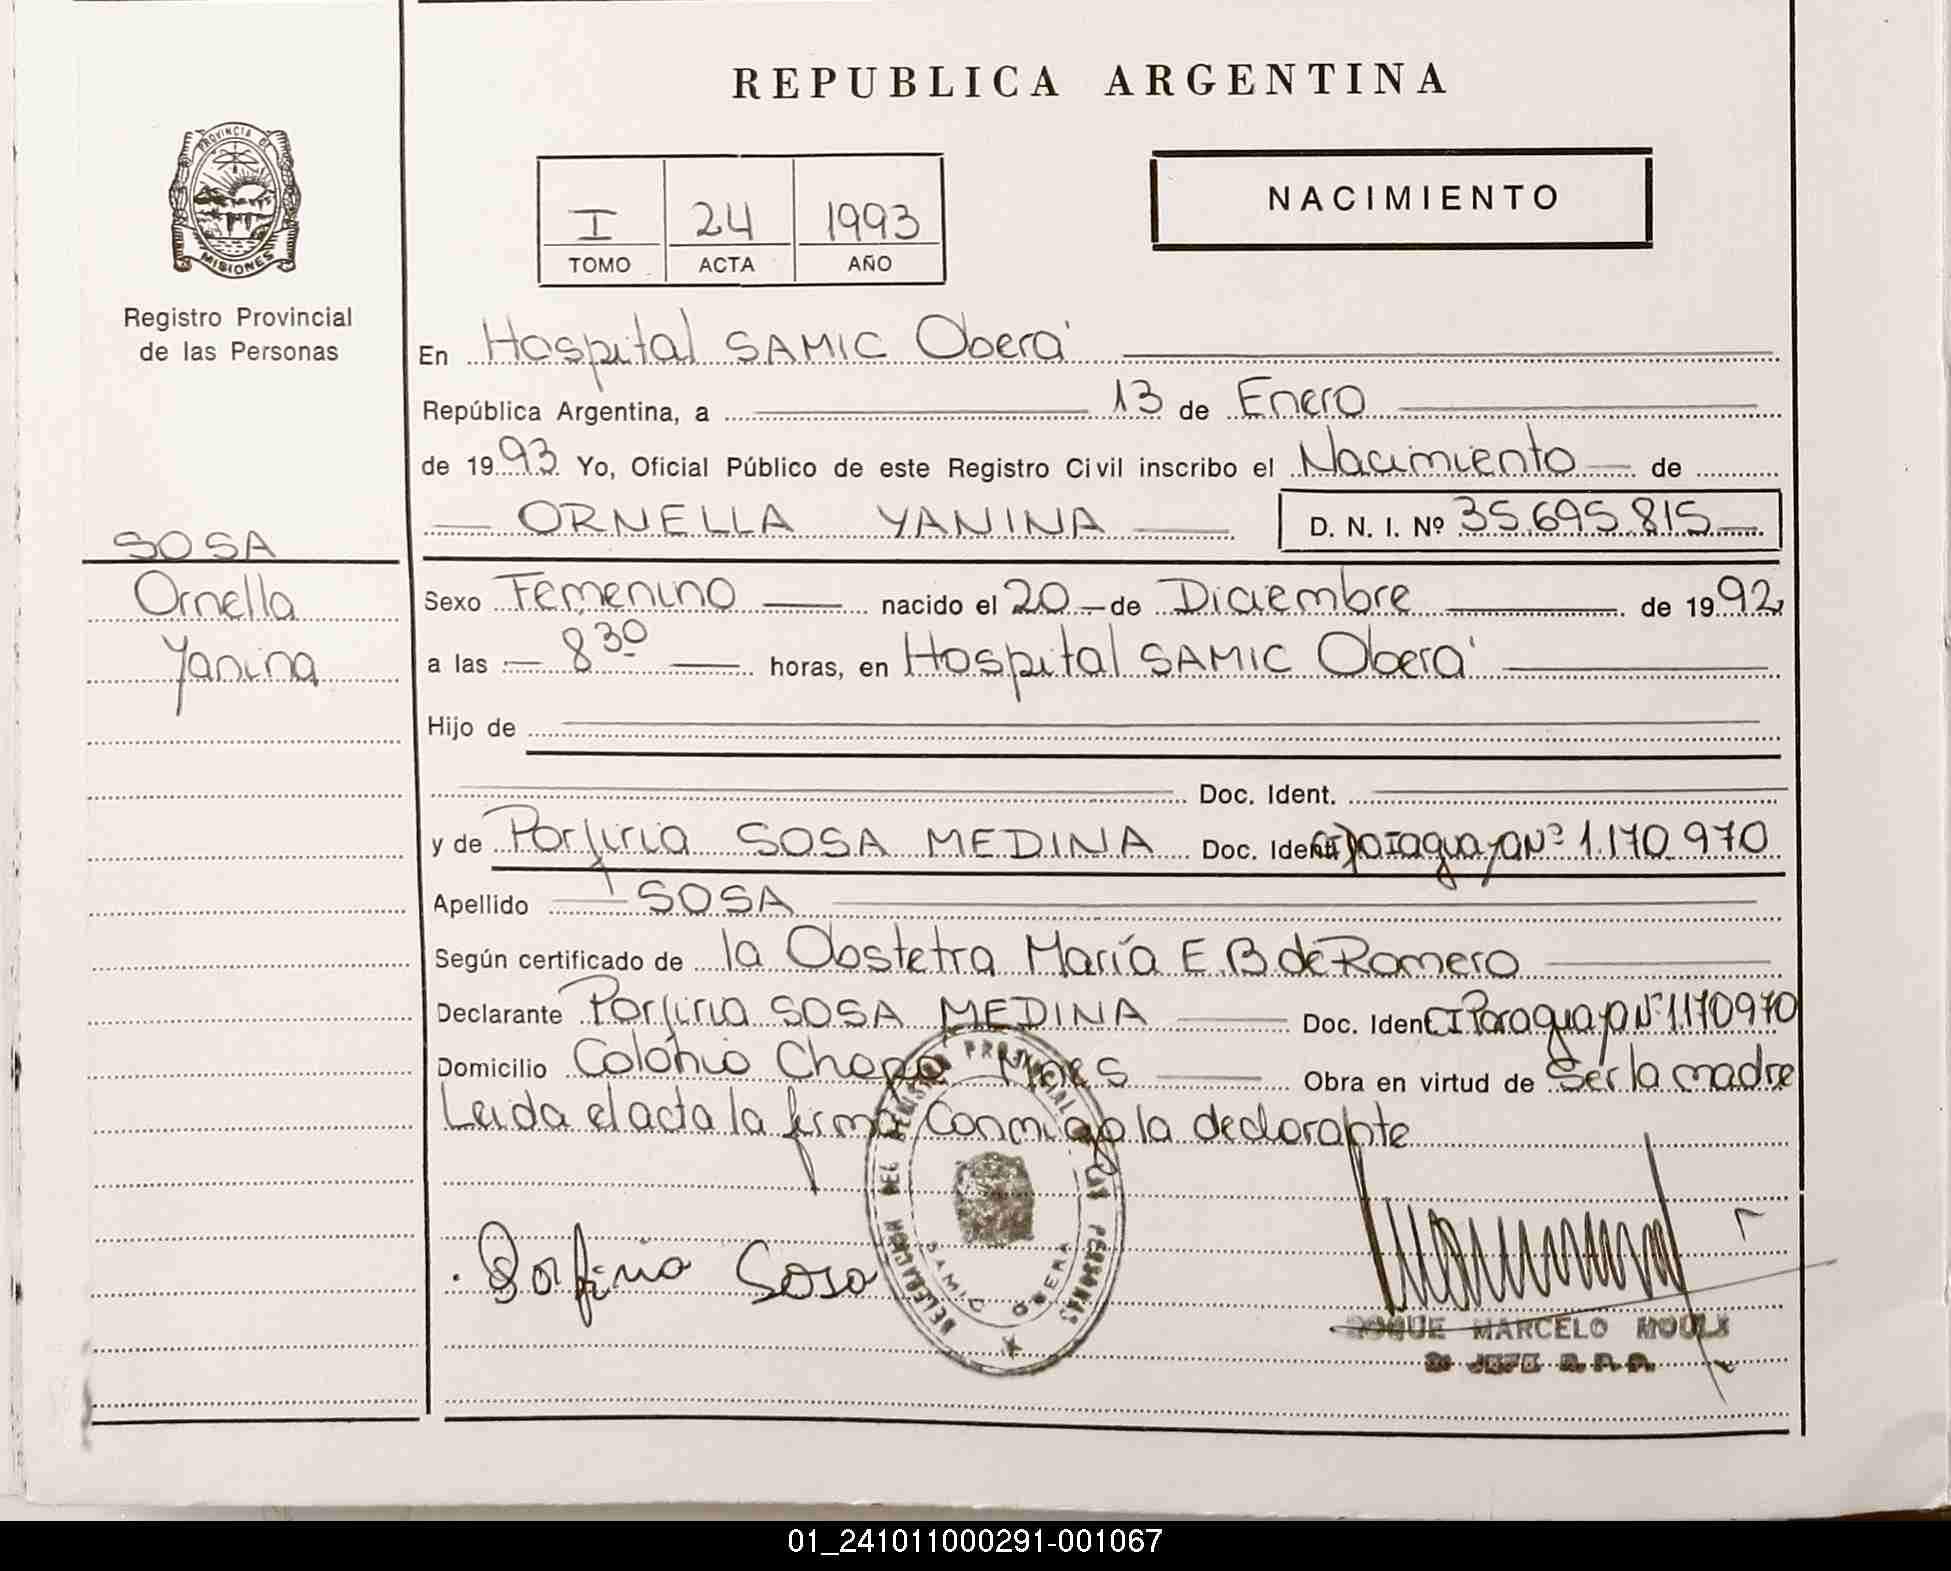 REPUBLICA ARGENTINA
PROVINCIA DE
MISIONES
Registro Provincial
de las Personas
I 24 1993
TOMO ACTA AÑO
NACIMIENTO
En Hospital SAMIC Oberá
República Argentina, a 13 de Enero
de 1993 Yo, Oficial Público de este Registro Civil inscribo el Nacimiento de
ORNELLA YANINA D. N. I. Nº 35.695.815
SOSA
Ornella
Yanina
Sexo Femenino nacido el 20 de Diciembre de 1992
a las 8 30 horas, en Hospital SAMIC Oberá
Hijo de
Doc. Ident.
y de Porfiria SOSA MEDINA Doc. Ident. CI paraguaya Nº 1.170.970
Apellido SOSA
Según certificado de la Obstetra María E.B de Romero
Declarante Porfiria SOSA MEDINA Doc. Ident. CI Paraguaya Nº 1170970
Domicilio Colonia Chapa Obra en virtud de Ser la madre
Leida el acta la firma conmigo la declarante
DELEGACION DEL REGISTRO PROVINCIAL DE LAS PERSONAS
SAMIC OBERA
Porfiria Sosa
ROQUE MARCELO
JEFE R. P. P.
01_241011000291-001067